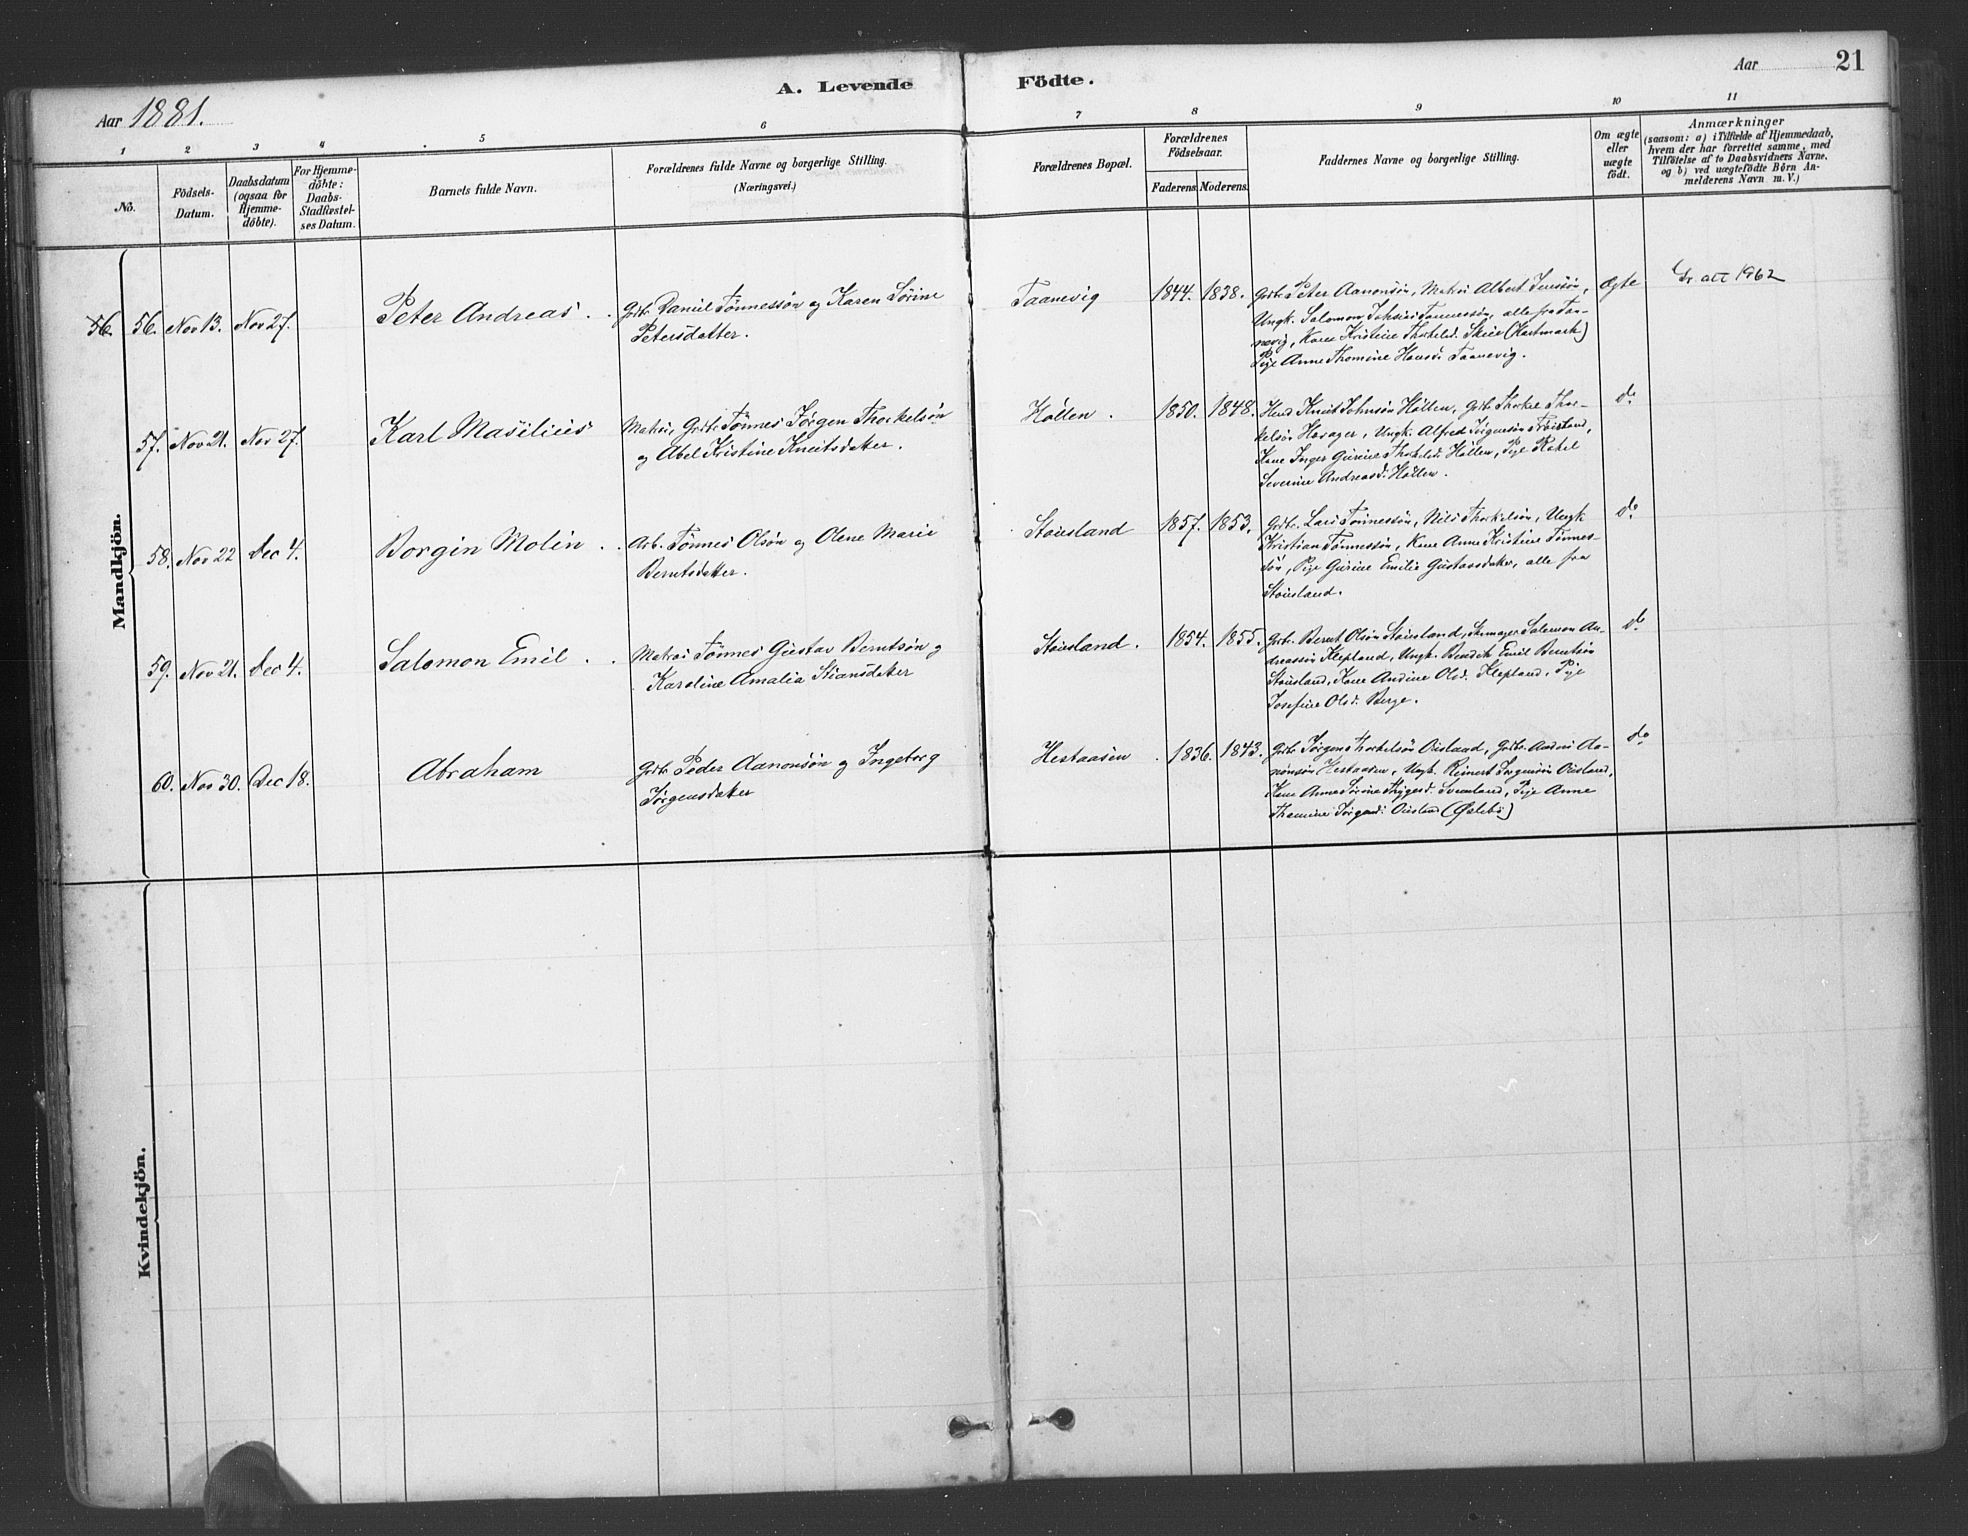 A. Levende Födte.
Aar 21
Aar 1881.
1 2 3 4 5 6 7 8 9 10 11
No.
Födsels-
Datum.
Daabsdatum
(ogsaa for
Hjemme-
döbte).
For Hjemme-
döbte:
Daabs-
Stadfæstel-
ses Datum.
Barnets fulde Navn.
Forældrenes fulde Navne og borgerlige Stilling.
(Næringsvei.)
Forældrenes Bopæl.
Forældrenes
Födselsaar.
Faderens. Moderens.
Faddernes Navne og borgerlige Stilling.
Om ægte
eller
uægte
födt.
Anmærkninger
(saasom: a) i Tilfælde af Hjemmedaab,
hvem der har forrettet samme, med
Tilföielse af to Daabsvidners Navne,
og b) ved uægtefödte Börn An-
melderens Navn m. V.)
Mandkjön.
56. 56. Nov 13. Nov 27.
Peter Andreas.
Grdbr. Daniel Tönnessön og Karen Sörine
Petersdatter.
Taanevig
1844. 1838.
Grdbr. Peter Aanonsön, Matros Albert Jenssön,
Ungk. Salomon Tönnessön, alle fra Taa-
nevig, Kone Kristine Thorkelsd. Skeie (Hartmark)
Pige Anne Thomine Hansd. Taanevig.
Ægte
att 1962
57. Nov 21. Nov 27.
Karl Masilius
Matros, Grdbr. Tönnes Jörgen Thorkelsön
og Abel Kristine Knutsdatter.
Höllen.
1850. 1848.
Knud Johnsön Höllen, Grdbr. Thorkel Thor-
kelsön Havager, Ungk. Alfred Jörgensön
Kone Inger Gurine Thorkelsd. Höllen, Pige Rakel
Severine Andreasd. Höllen.
do
58. Nov 22 Dec 4.
Borgin Molin.
Arb. Tönnes Olsön og Olene Marie
Berntsdatter.
Stausland
1857. 1853.
Grdbr. Lars Tönnessön, Nils Thorkelsön, Ungk
Kristian Tönnessön, Kone Anne Kristine Tönnes-
sön, Pige Gurine Emilie Gustavsdatter, alle fra
Stausland.
do
59. Nov 21. Dec 4.
Salomon Emil.
Matros Tönnes Gustav Berntsön og
Karoline Amalia Stiansdatter
Stausland.
1854. 1855.
Grdbr. Bernt Olsön Stausland, Skomager Salomon An-
dreassön Klepland, Ungk. Bendik Emil Berntsön
Stausland, Kone Andine Olsd. Klepland, Pige
Josefine Olsd. Berge.
do
60. Nov 30. Dec 18.
Abraham
Grdbr. Peder Aanonsön og Ingeborg
Jörgensdatter
Hestaasen
1836. 1843.
Grdbr. Jörgen Thorkelsön Ousland, Grdbr. Anders Aa-
nonsön Hestaasen, Ungk. Reinert Jörgensön Ousland,
Kone Anne Sörine Thygesd. Svenland, Pige Anne
Thomine Jörgensd. Ousland (Öslebö)
do
Kvindekjön.